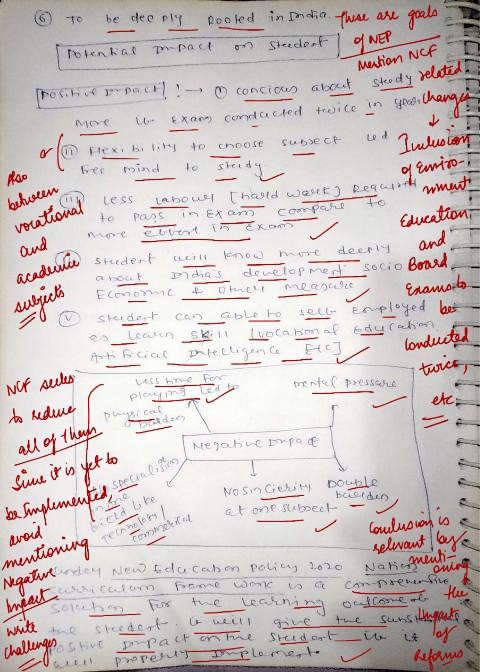 ⑥ To be deeply Rooted in India.
These are goals
of NEP
Potential Impact on Student
Mention NCF
related
changes
↓
Inclusion
of Enviro-
nment
Education
and
Board
Exams to
be
Conducted
twice,
etc
Positive Impact ! → ① concious about study
more ib Exam conducted twice in year
(ii) Flexibility to choose subject led
free mind to study
Also
between
vorational
and
academic
subjects
(iii) Less labour [hard work] Require
to pass in Exam compare to
more effort in Exam
(iv) student will know more deeply
about India's development socio
Economic & other measure
(v) student can able to self Employed
as learn skill [vocational Education
Artificial Intelligence Etc]
NCF seeks
to reduce
all of them
Since it is yet to
be Implemented,
avoid
mentioning
Negative
Impact
Write
challenges
Less time for
playing led to
physical
burden
mental pressure
Negative Impact
specialisation
in one
field like
Technology/
commercial
No sincierity
at one subject
Double
burden
Conclusion is
relevant by
menti-
oning
the
Impact
of
Reforms
under New Education Policy 2020 National
curriculum frame work is a comprehensive
solution for the learning outcome of
the student it will give the
positive Impact on the student ib it
will properly Implement